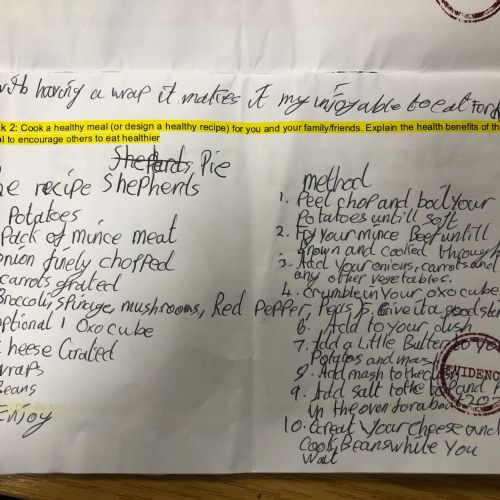 with having a wrap it makes it my injoyable to eat
k 2: Cook a healthy meal (or design a healthy recipe) for you and your family/friends. Explain the health benefits of th
al to encourage others to eat healthier
Pie
e recipe Shepherds
Potatoes
Pack of mince meat
onion finely chopped
carrots grated
Broccoli, Spinage, mushrooms, Red Pepper, Peas
optional 1 Oxo cube
Cheese Grated
wraps
Beans
Enjoy
method
1. Peel chop and boil your
Potatoes untill soft
2. Fry your mince Beef untill
grown and cooked through
3. Add your onions, carrots and
any other vegetables.
4. Crumble in your oxo cube
5. Give it a good stir
6. Add to your dish
7. Add a Little Butter to yo
Potatoes and mash
8. Add mash to the dish
9. Add Salt to the top and
in the oven for about
10. Great your cheese and
Cook Beans while you
wait
EVIDENC